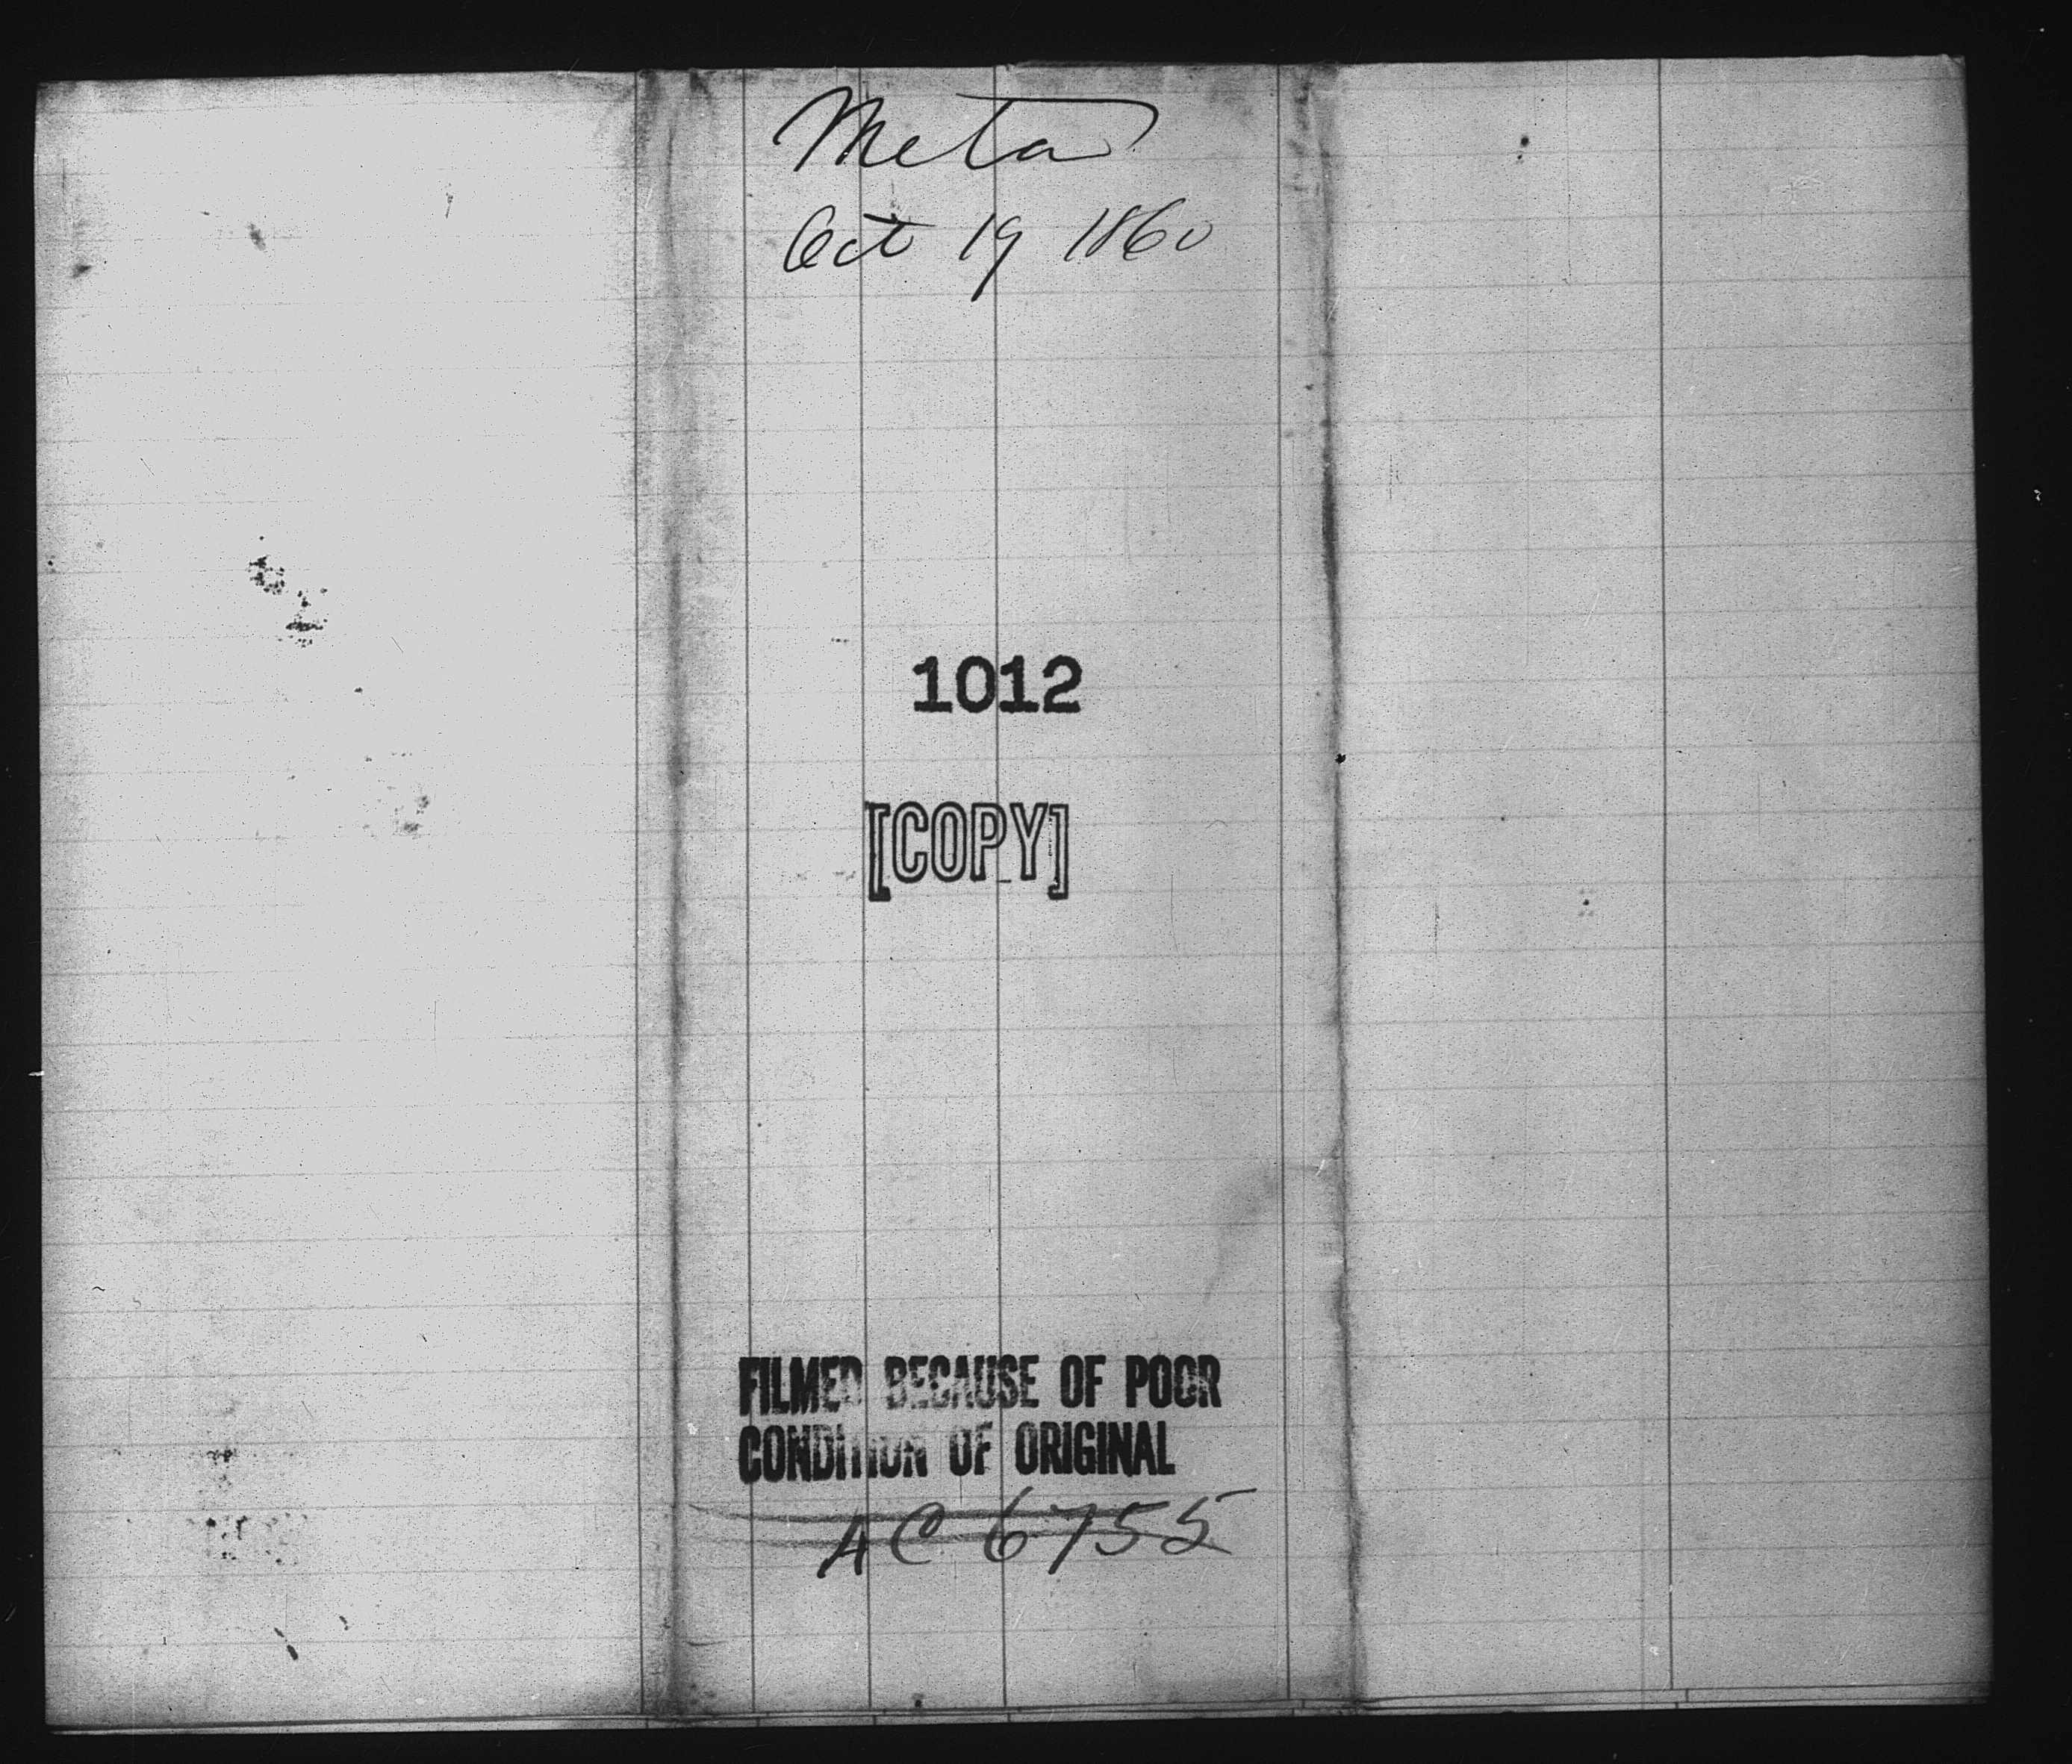 Meta
Oct 19 1860
1012
[COPY]
FILMED BECAUSE OF POOR
CONDITION OF ORIGINAL
AC 6755